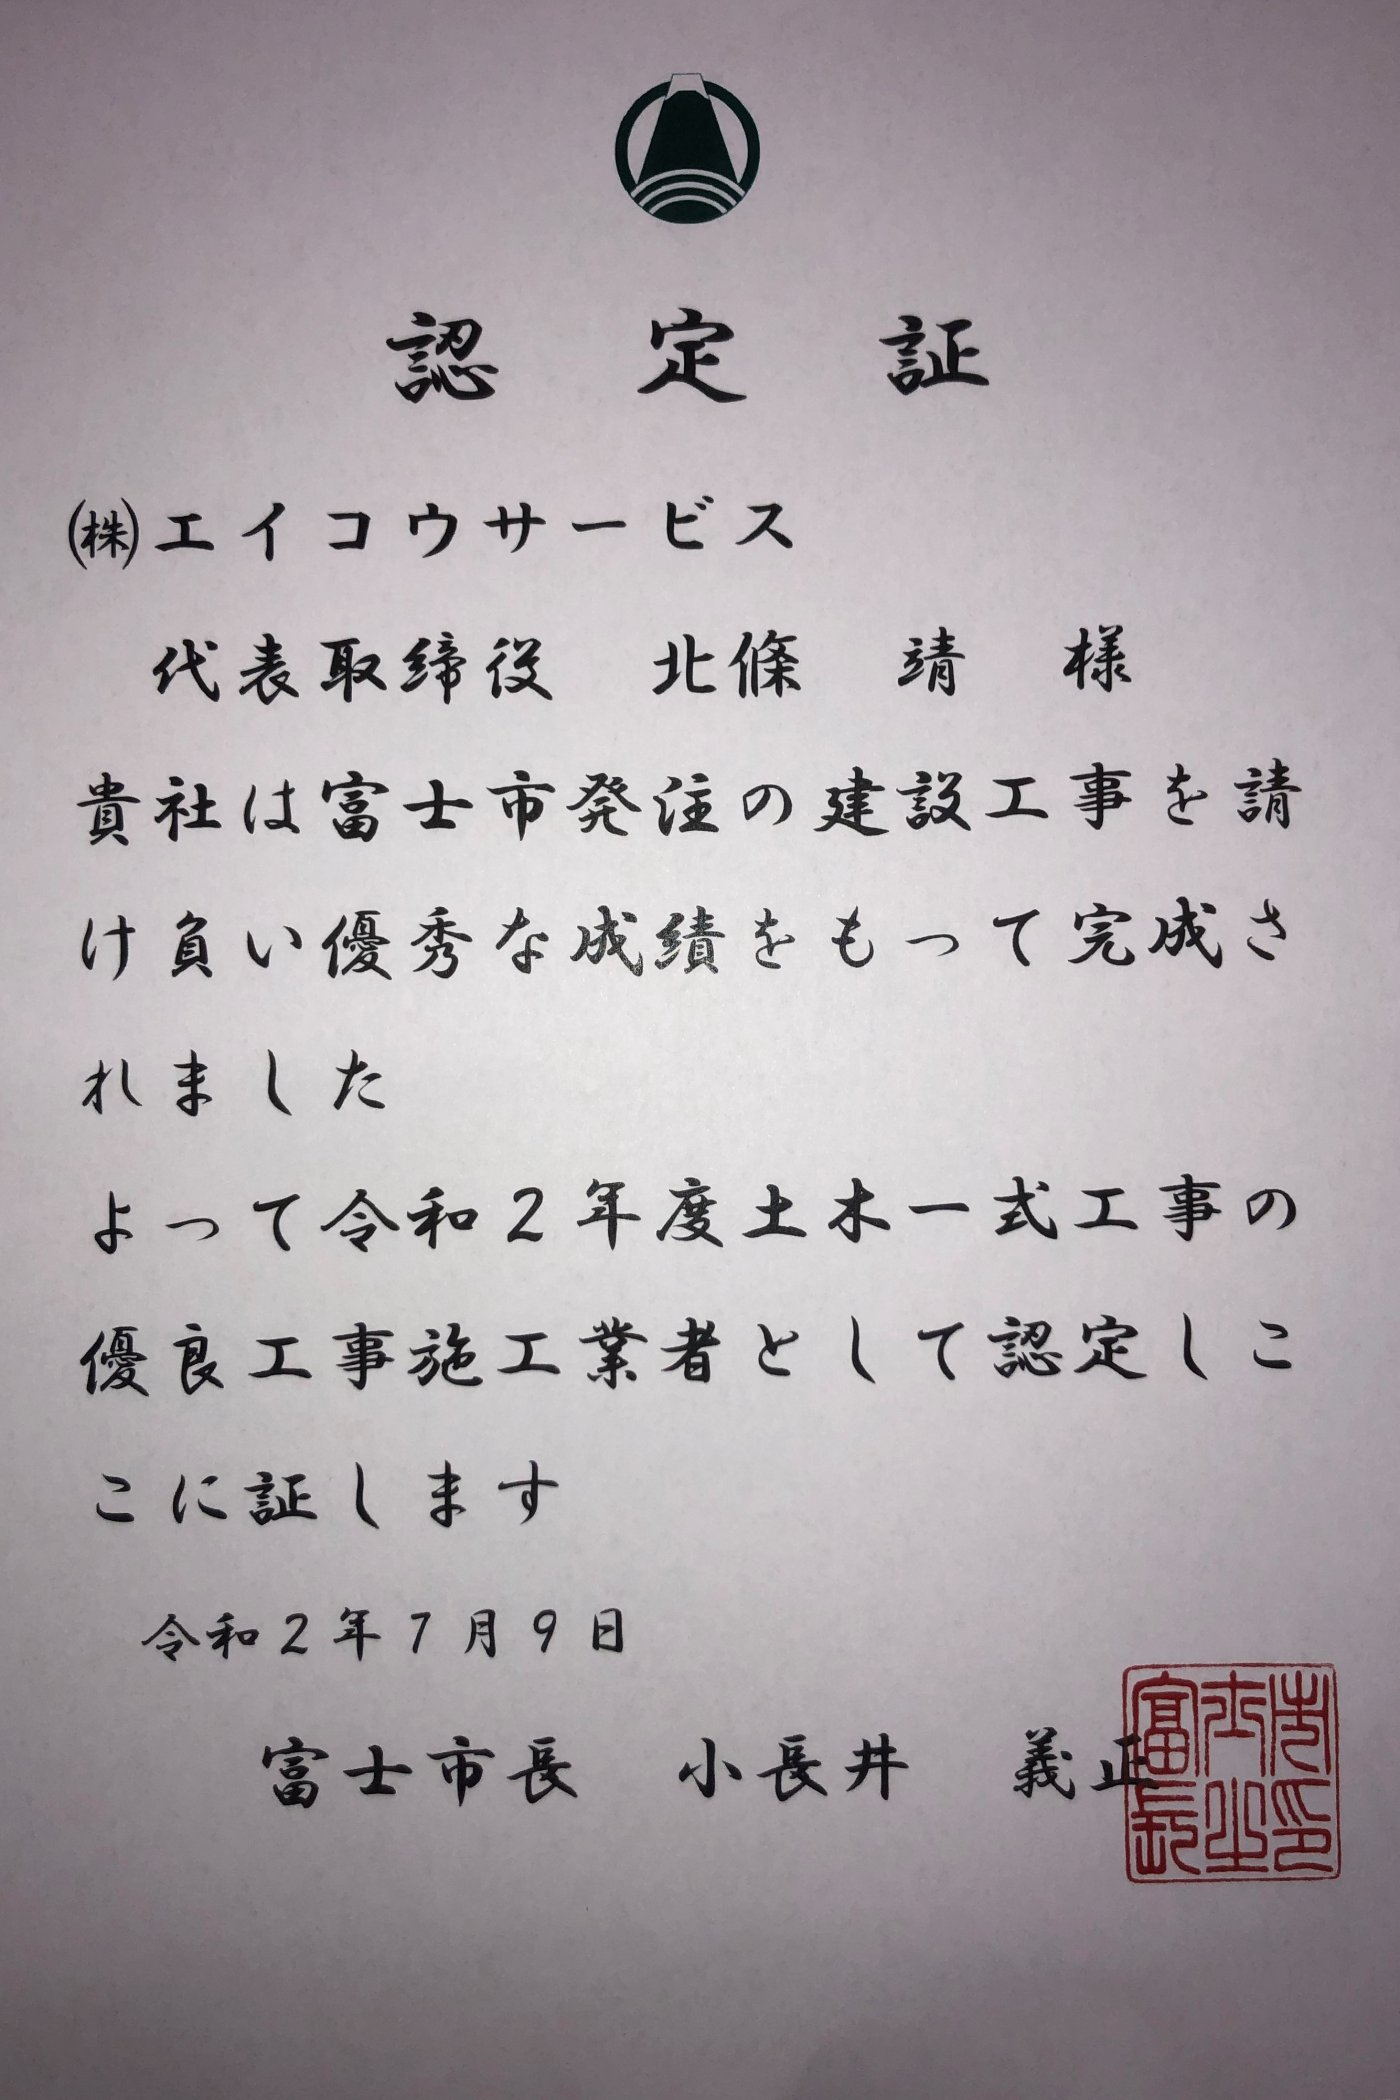 認定証
㈱エイコウサービス
代表取締役 北條 靖 様
貴社は富士市発注の建設工事を請
け負い優秀な成績をもって完成さ
れました
よって令和２年度土木一式工事の
優良工事施工業者として認定しこ
こに証します
令和２年７月９日
富士市長 小長井 義正
富士市長之印